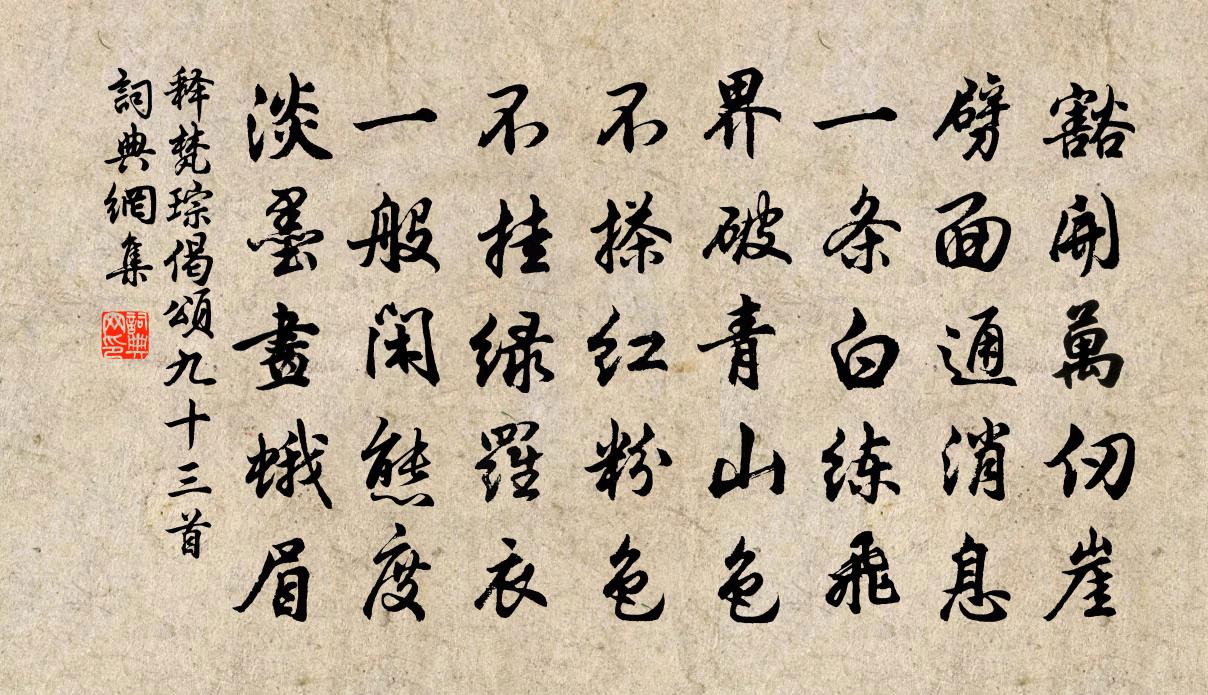 豁開萬仞崖
劈面通消息
一条白练飛
界破青山色
不搽红粉色
不挂緑羅衣
一般闲態度
淡墨畫蛾眉
释梵琮偈頌九十三首
詞典網集
詞典网印